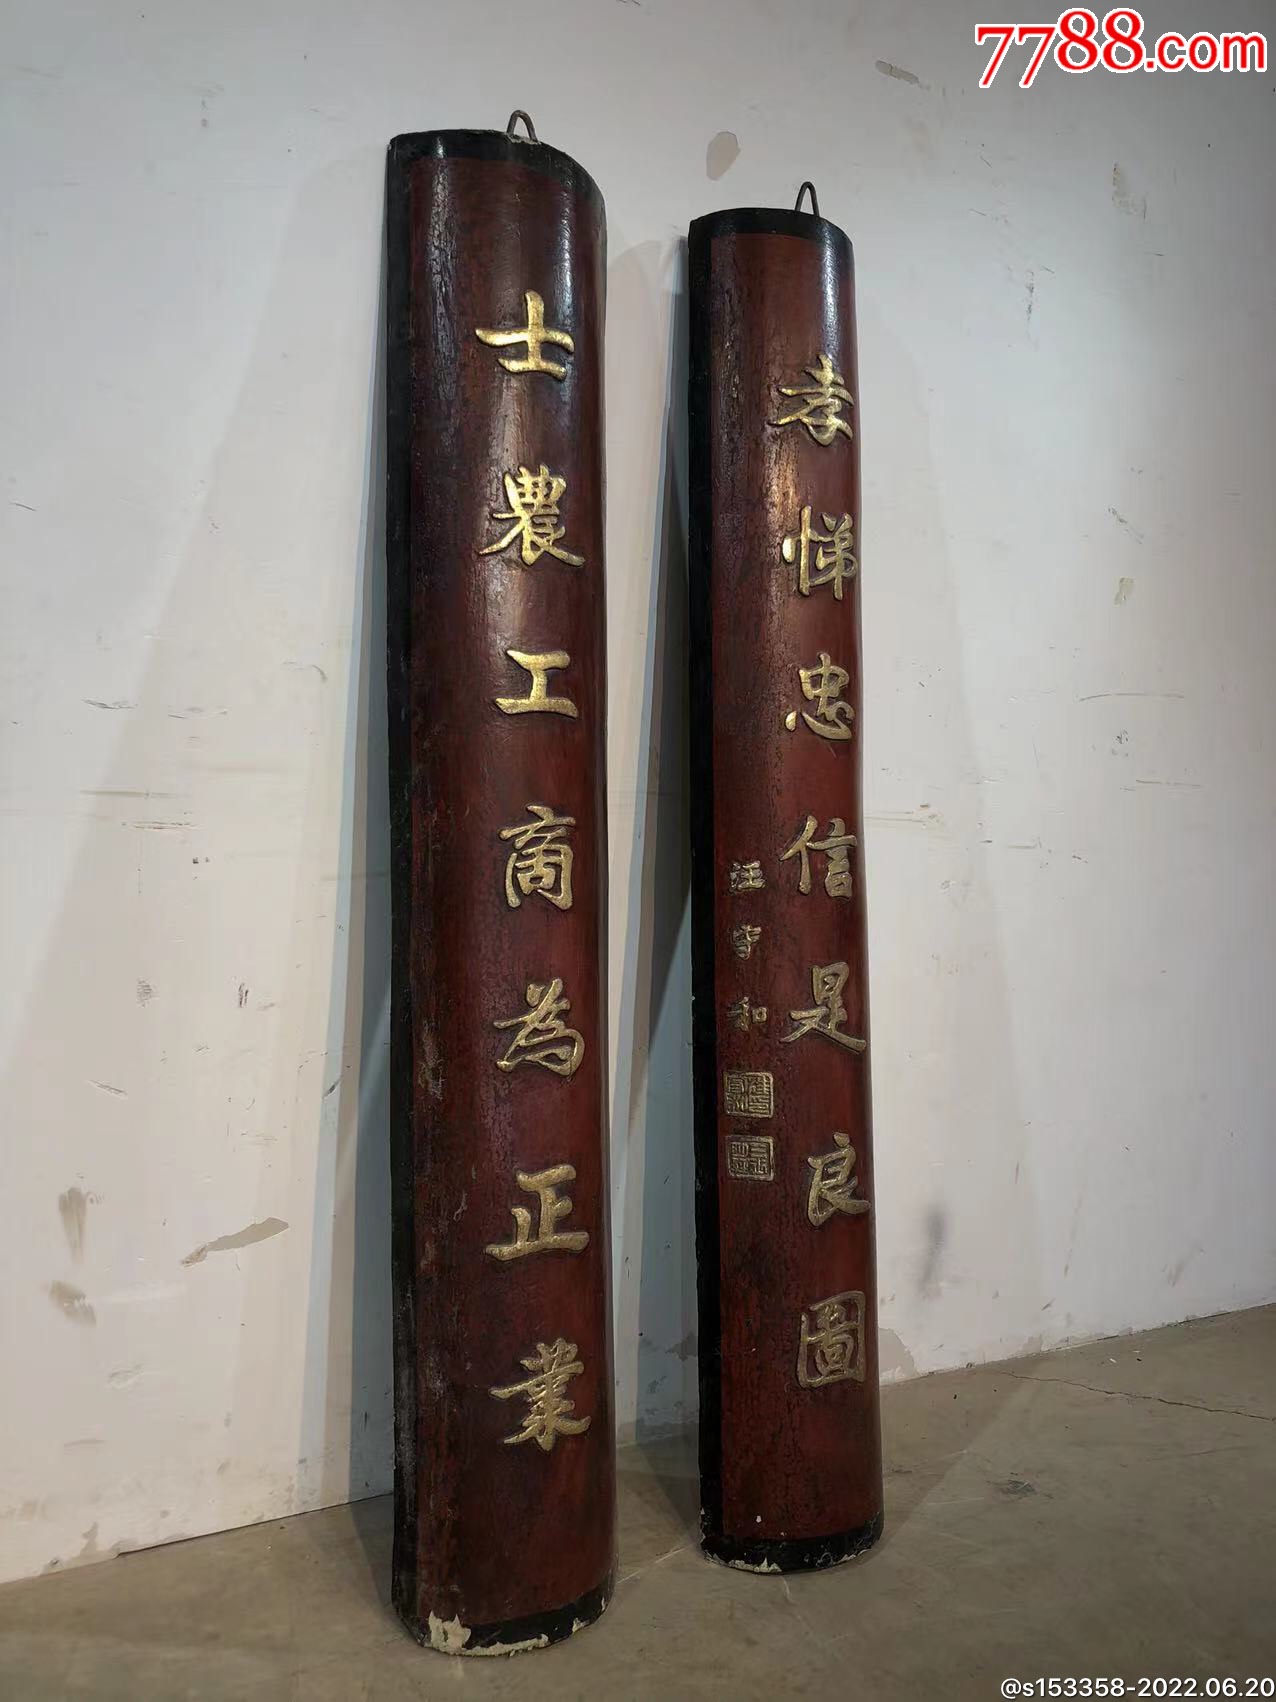 7788.com
士農工商為正業
孝悌忠信是良圖
汪守和
@s153358-2022.06.20